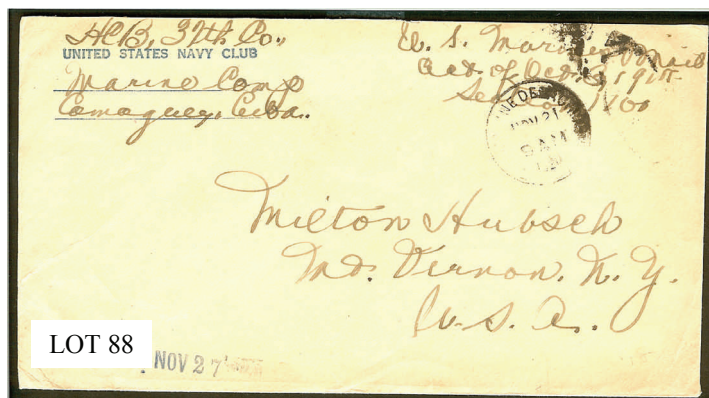 H.C.B, 37th Co.,
UNITED STATES NAVY CLUB
Marine Camp
Camaguey, Cuba.
U. S. Marine Mail
Act of Oct. 3, 1917
Sec. 1100
NOV 21
9 AM
Milton Hubsch
Mt. Vernon. N. Y.
U. S. A.
LOT 88
NOV 27